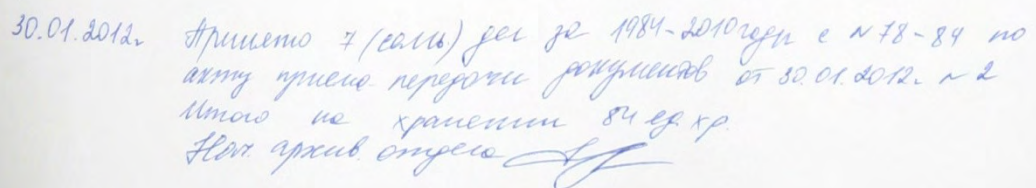 30.01.2012г Принято 7 (семь) дел за 1984-2010 годы с №78-84 по
акту приема передачи документов от 30.01.2012г №2
Итого на хранении 84 ед. хр.
Нач. архив. отдела